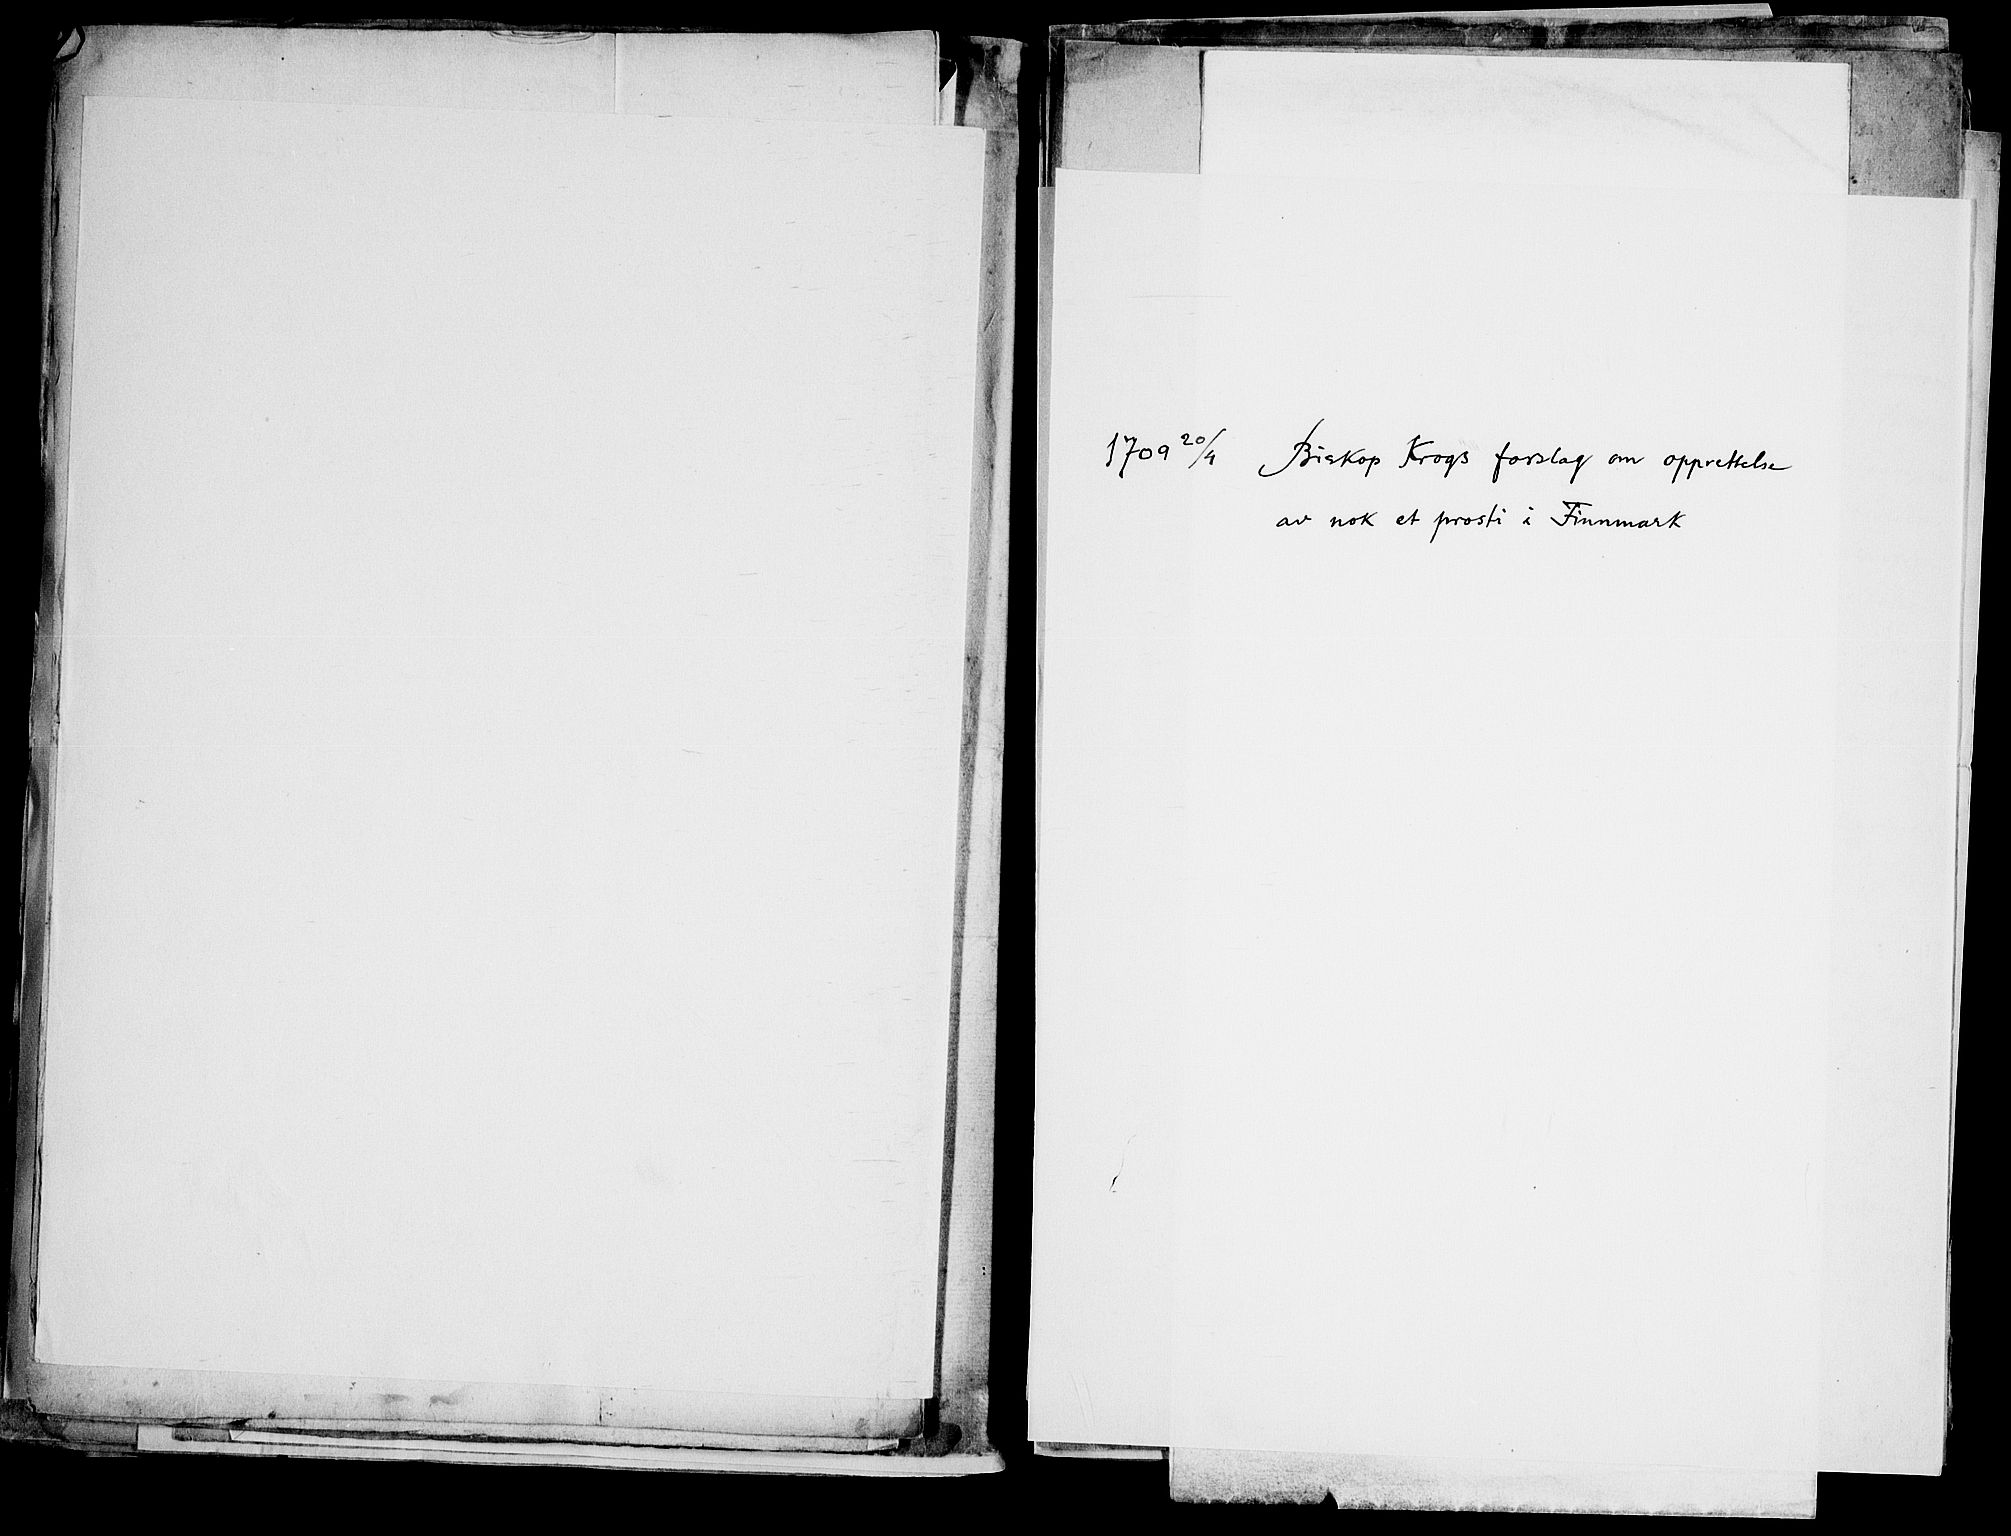 1709 20/4 Biskop Krogs forslag om opprettelse
av nok et prosti i Finnmark